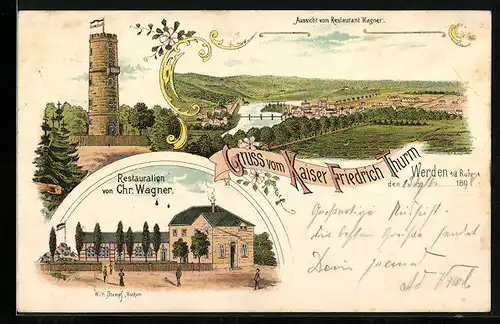 Aussicht vom Restaurant Wagner.
Gruss vom Kaiser Friedrich Thurm
Restauration
von Chr. Wagner.
Werden a/d Ruhr
den 189
die besten Grüsse sendet
Dein
Wilh. Stumpf, Bochum